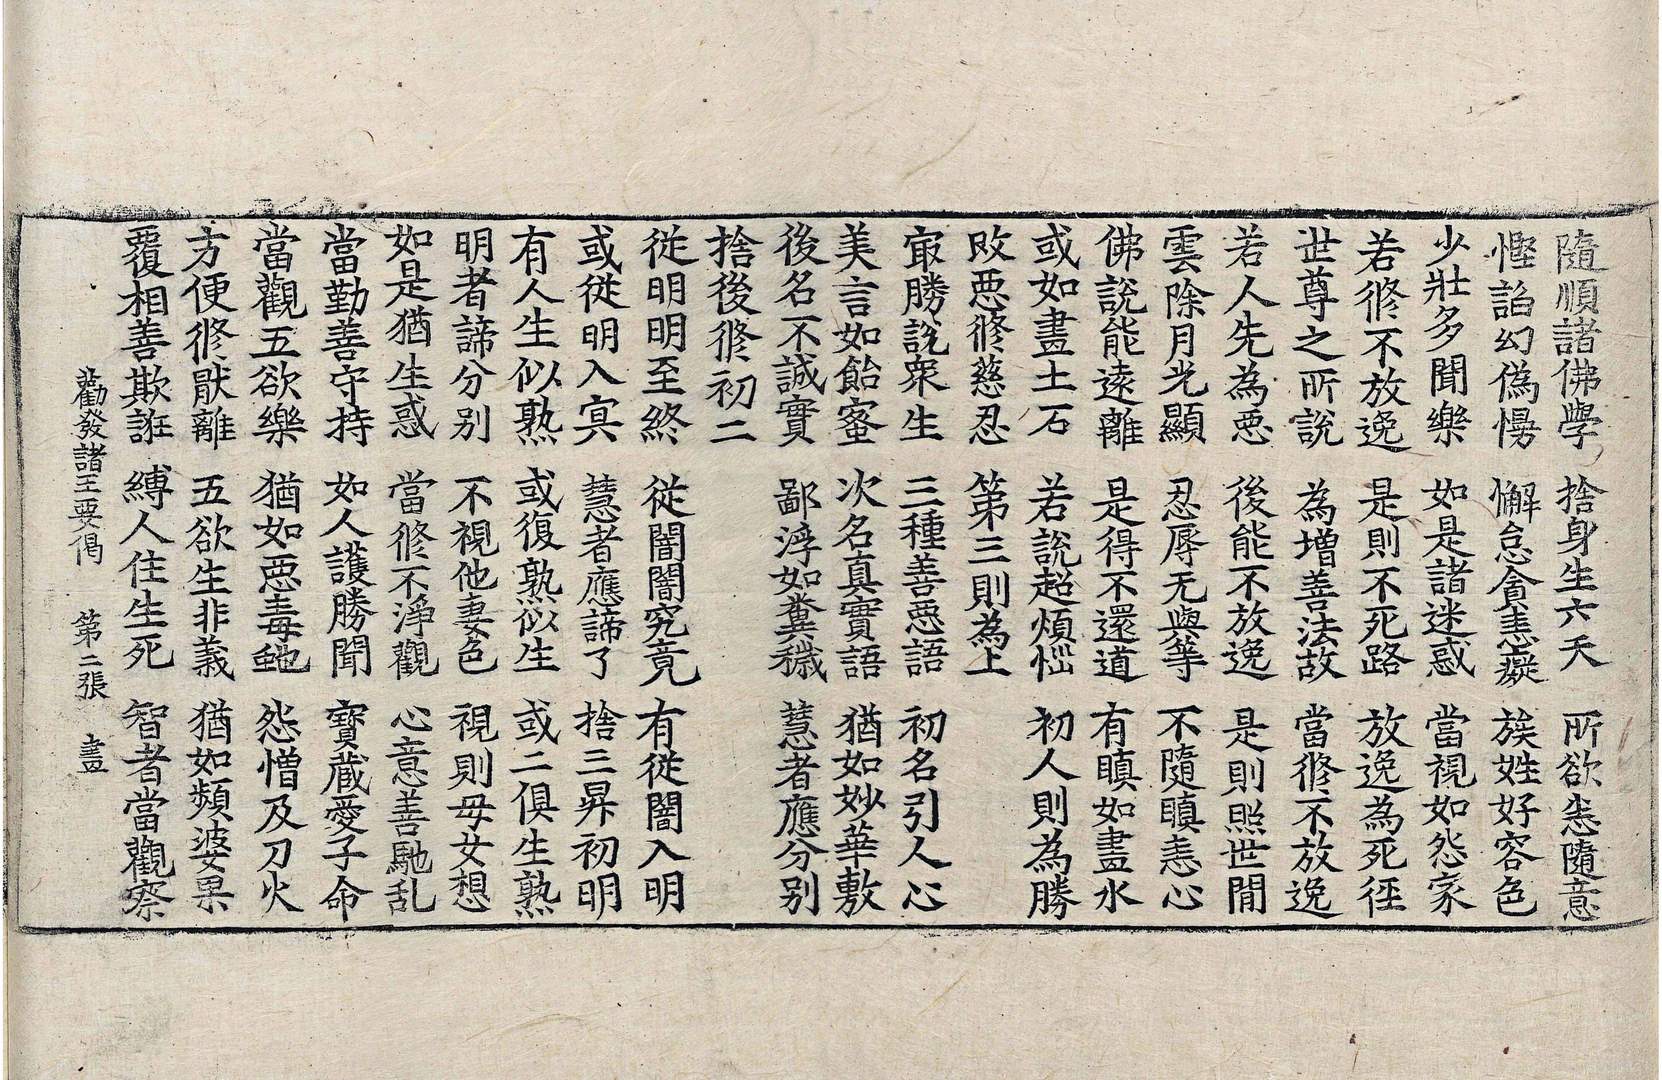 隨順諸佛學 捨身生六天 所欲恣隨意
慳諂幻偽慢 懈怠貪恚癡 族姓好容色
少壯多聞樂 如是諸迷惑 當視如怨家
若修不放逸 是則不死路 放逸為死徑
世尊之所說 為增善法故 當修不放逸
若人先為惡 後能不放逸 是則照世間
雲除月光顯 忍辱无與等 不隨瞋恚心
佛說能遠離 是得不還道 有瞋如畫水
或如畫土石 若說超煩惱 初人則為勝
敗惡修慈忍 第三則為上
最勝說衆生 三種善惡語 初名引人心
美言如飴蜜 次名真實語 猶如妙華敷
後名不誠實 鄙浮如糞穢 慧者應分別
捨後修初二
從明明至終 從闇闇究竟 有從闇入明
或從明入冥 慧者應諦了 捨三昇初明
有人生似熟 或復熟似生 或二俱生熟
明者諦分別 不視他妻色 視則母女想
如是猶生惑 當修不淨觀 心意善馳乱
當勤善守持 如人護勝聞 寶藏愛子命
當觀五欲樂 猶如惡毒虵 怨憎及刀火
方便修猒離 五欲生非義 猶如頻婆果
覆相善欺誑 縛人住生死 智者當觀察
勸發諸王要偈 第二張 畫